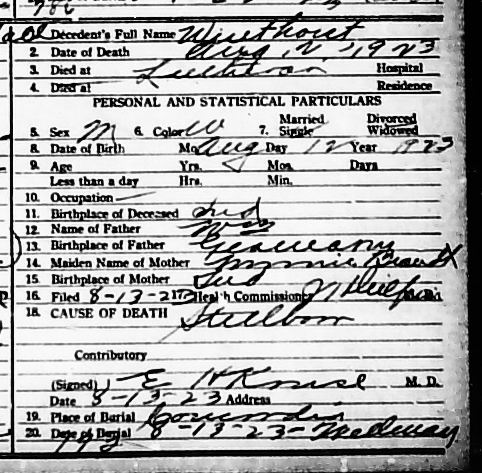 Decedent's Full Name Winthout
2. Date of Death Aug 12, 1923
3. Died at Lutheran Hospital
4. Died at Residence
PERSONAL AND STATISTICAL PARTICULARS
5. Sex M 6. Color W 7. Married Single Divorced Widowed
8. Date of Birth Mo. Aug Day 12 Year 1923
9. Age Yrs. Mos. Days
Less than a day Hrs. Min.
10. Occupation —
11. Birthplace of Deceased Ind
12. Name of Father Wm
13. Birthplace of Father Germany
14. Maiden Name of Mother Minnie Brandt
15. Birthplace of Mother Ind
16. Filed 8-13-23 17. Health Commissioner
18. CAUSE OF DEATH Stillborn
Contributory
(Signed) E H Kruse M. D.
Date 8-13-23 Address
19. Place of Burial Concordia
20. Date of Burial 8-13-23-